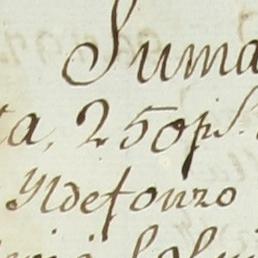 Suma
ta, 250 ps.
Yldefonzo